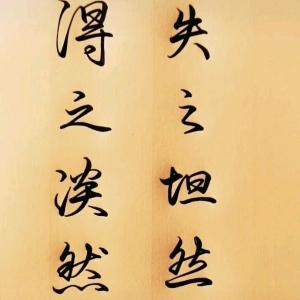 得之淡然
失之坦然